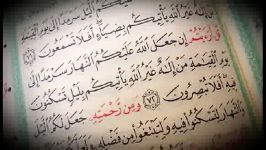 سَرْمَدًا إِلَىٰ يَوْمِ ٱلْقِيَٰمَةِ
مَنْ إِلَٰهٌ غَيْرُ ٱللَّهِ يَأْتِيكُم بِضِيَآءٍ أَفَلَا تَسْمَعُونَ ٧١
قُلْ أَرَءَيْتُمْ إِن جَعَلَ ٱللَّهُ عَلَيْكُمُ ٱلنَّهَارَ سَرْمَدًا إِلَىٰ
يَوْمِ ٱلْقِيَٰمَةِ مَنْ إِلَٰهٌ غَيْرُ ٱللَّهِ يَأْتِيكُم بِلَيْلٍ تَسْكُنُونَ
فِيهِ أَفَلَا تُبْصِرُونَ ٧٢ وَمِن رَّحْمَتِهِۦ جَعَلَ لَكُمُ ٱلَّيْلَ
وَٱلنَّهَارَ لِتَسْكُنُوا۟ فِيهِ وَلِتَبْتَغُوا۟ مِن فَضْلِهِۦ